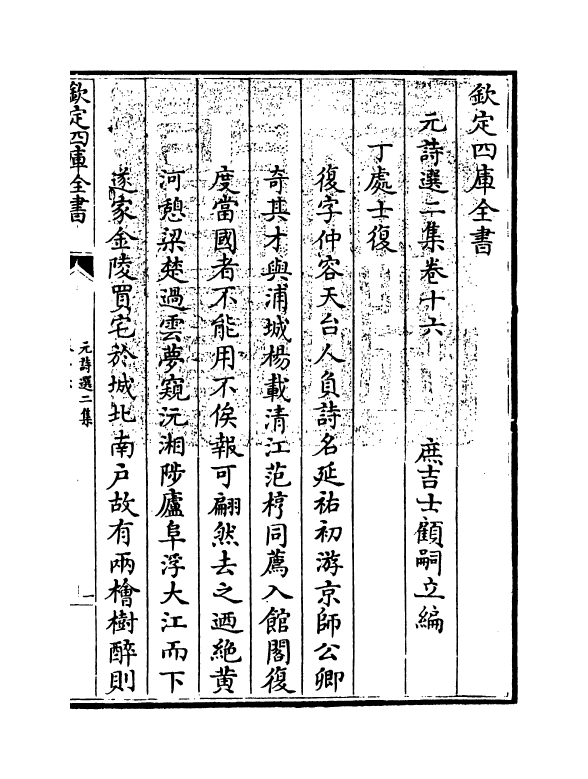 欽定四庫全書
元詩選二集卷十六
庶吉士顧嗣立編
丁處士復
復字仲容天台人負詩名延祐初游京師公卿
奇其才與浦城楊載清江范梈同薦入館閣復
度當國者不能用不俟報可翩然去之迺絶黄
河憩梁楚過雲夢窺沅湘陟廬阜浮大江而下
遂家金陵買宅於城北南户故有兩檜樹醉則
欽定四庫全書
元詩選二集
一